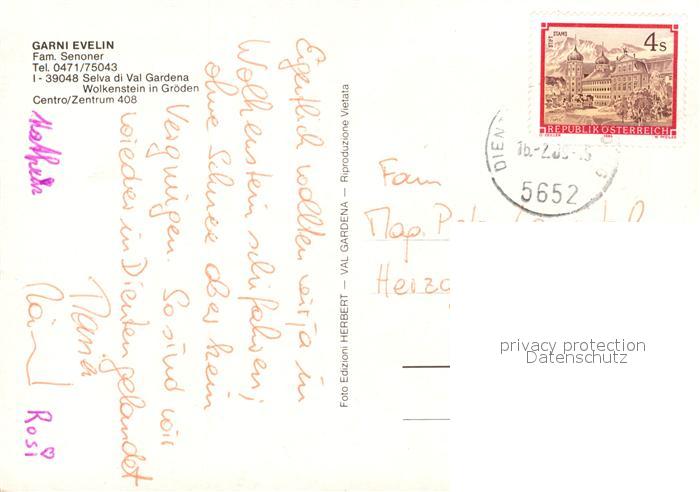 GARNI EVELIN
Fam. Senoner
Tel. 0471/75043
I - 39048 Selva di Val Gardena
Wolkenstein in Gröden
Centro/Zentrum 408
Eigentlich wollten wir ja in
Wolkenstein schifahren,
ohne Schnee aber kein
Vergnügen. So sind wir
wieder in Dienten gelandet
Rosi
Foto Edizioni HERBERT — VAL GARDENA — Riproduzione Vietata
STIFT STAMS
4 s
REPUBLIK ÖSTERREICH
DIENT
16.-2.
5652
Fam
Mag.
Herzo
privacy protection
Datenschutz